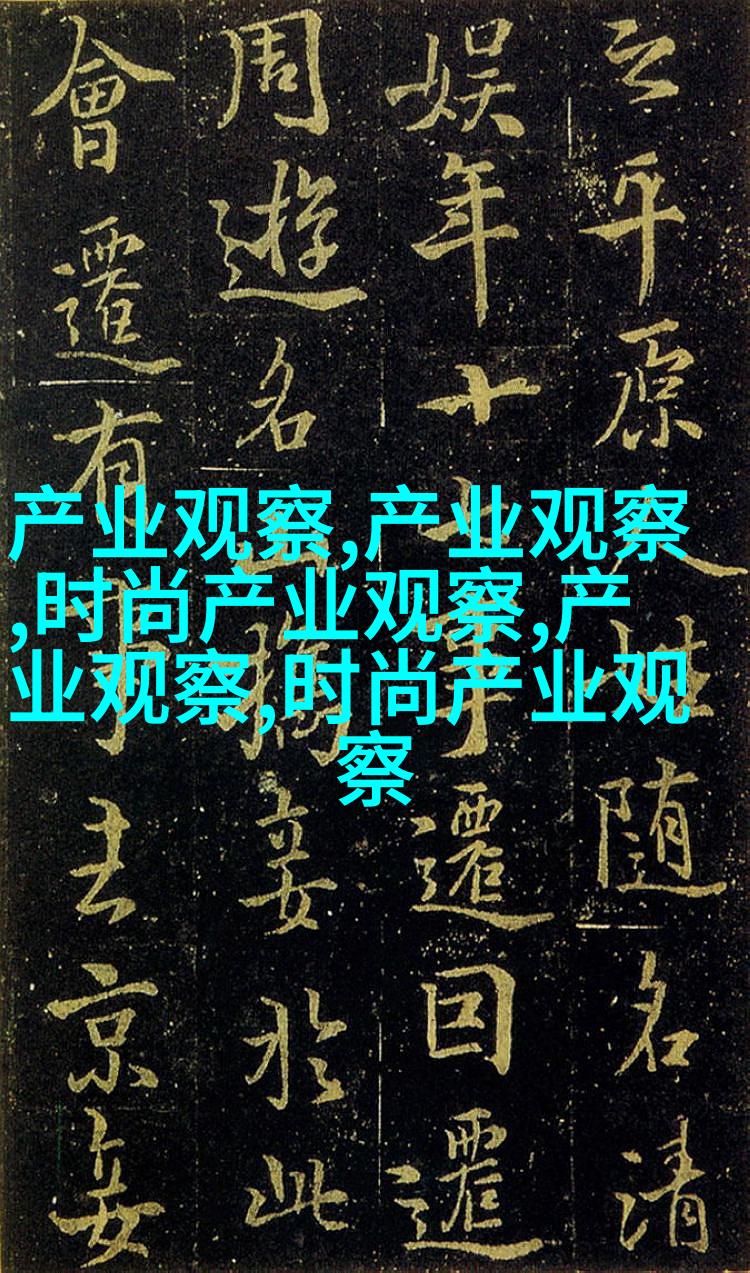 产业观察,产业观察
,时尚产业观察,产
业观察,时尚产业观
察
平原人姓随名清
娱年十七事遷回遷
周遊名山妾於此
會遷有事去京妾